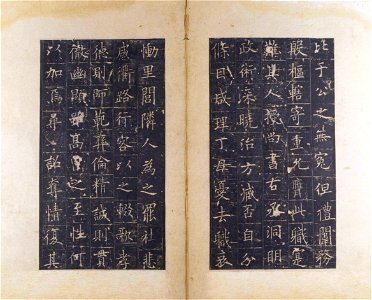 比于公之無冤但禮闈務
殷樞轄寄重允釐此職寔
難其人授尚書右丞洞明
政術深曉治方臧否自分
條目咸理丁母憂去職哀
慟里閭鄰人為之罷社悲
感衢路行客以之輟歌孝
德則師範彝倫精誠則貫
徹幽顯雖高曾之至性何
以加焉尋詔奪情復其